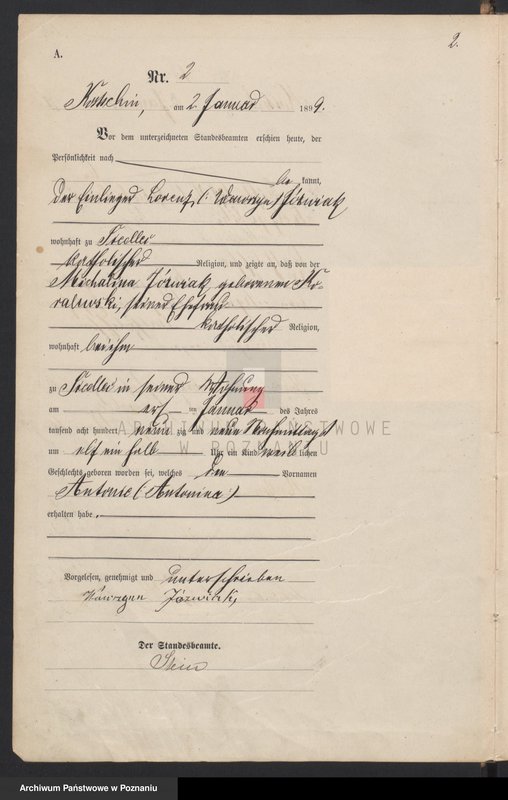 2.
A.
Nr. 2
Kostschin, am 2. Januar 1899.
Vor dem unterzeichneten Standesbeamten erschien heute, der
Persönlichkeit nach
be kannt,
der Einlieger Lorenz (: Wawrzyn) Józwiak
wohnhaft zu Siedlec
katholischer Religion, und zeigte an, daß von der
Michalina Józwiak geborenen Ko-
ralewski, seiner Ehefrau
katholischer Religion,
wohnhaft bei ihm
zu Siedlec in seiner Wohnung
am ersten Januar des Jahres
tausend acht hundert neunzig und neun Nachmittags
um elf ein halb Uhr ein Kind weiblichen
Geschlechts geboren worden sei, welches den Vornamen
Antonie (Antonina)
erhalten habe.
ARCHIWUM PAŃSTWOWE
W POZNANIU
Vorgelesen, genehmigt und unterschrieben
Wawrzyn Józwiak
Der Standesbeamte.
Archiwum Państwowe w Poznaniu